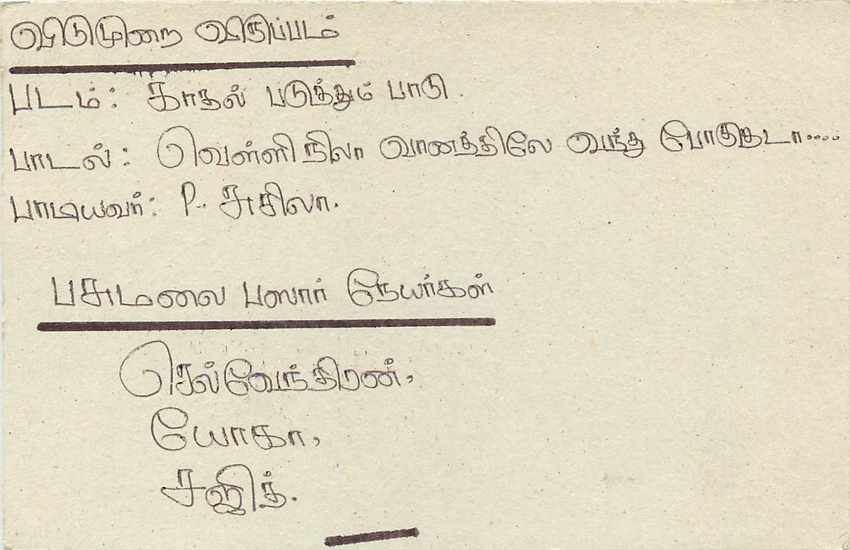 விடுமுறை விருப்படம்
படம்: காதல் படுத்தும் பாடு.
பாடல்: வெள்ளிநிலா வானத்திலே வந்து போகுதடா....
பாடியவர்: P. சுசிலா.
பசுமலை பஸார் நேயர்கள்
செல்வேந்திரன்,
யோகா,
சஜித்.